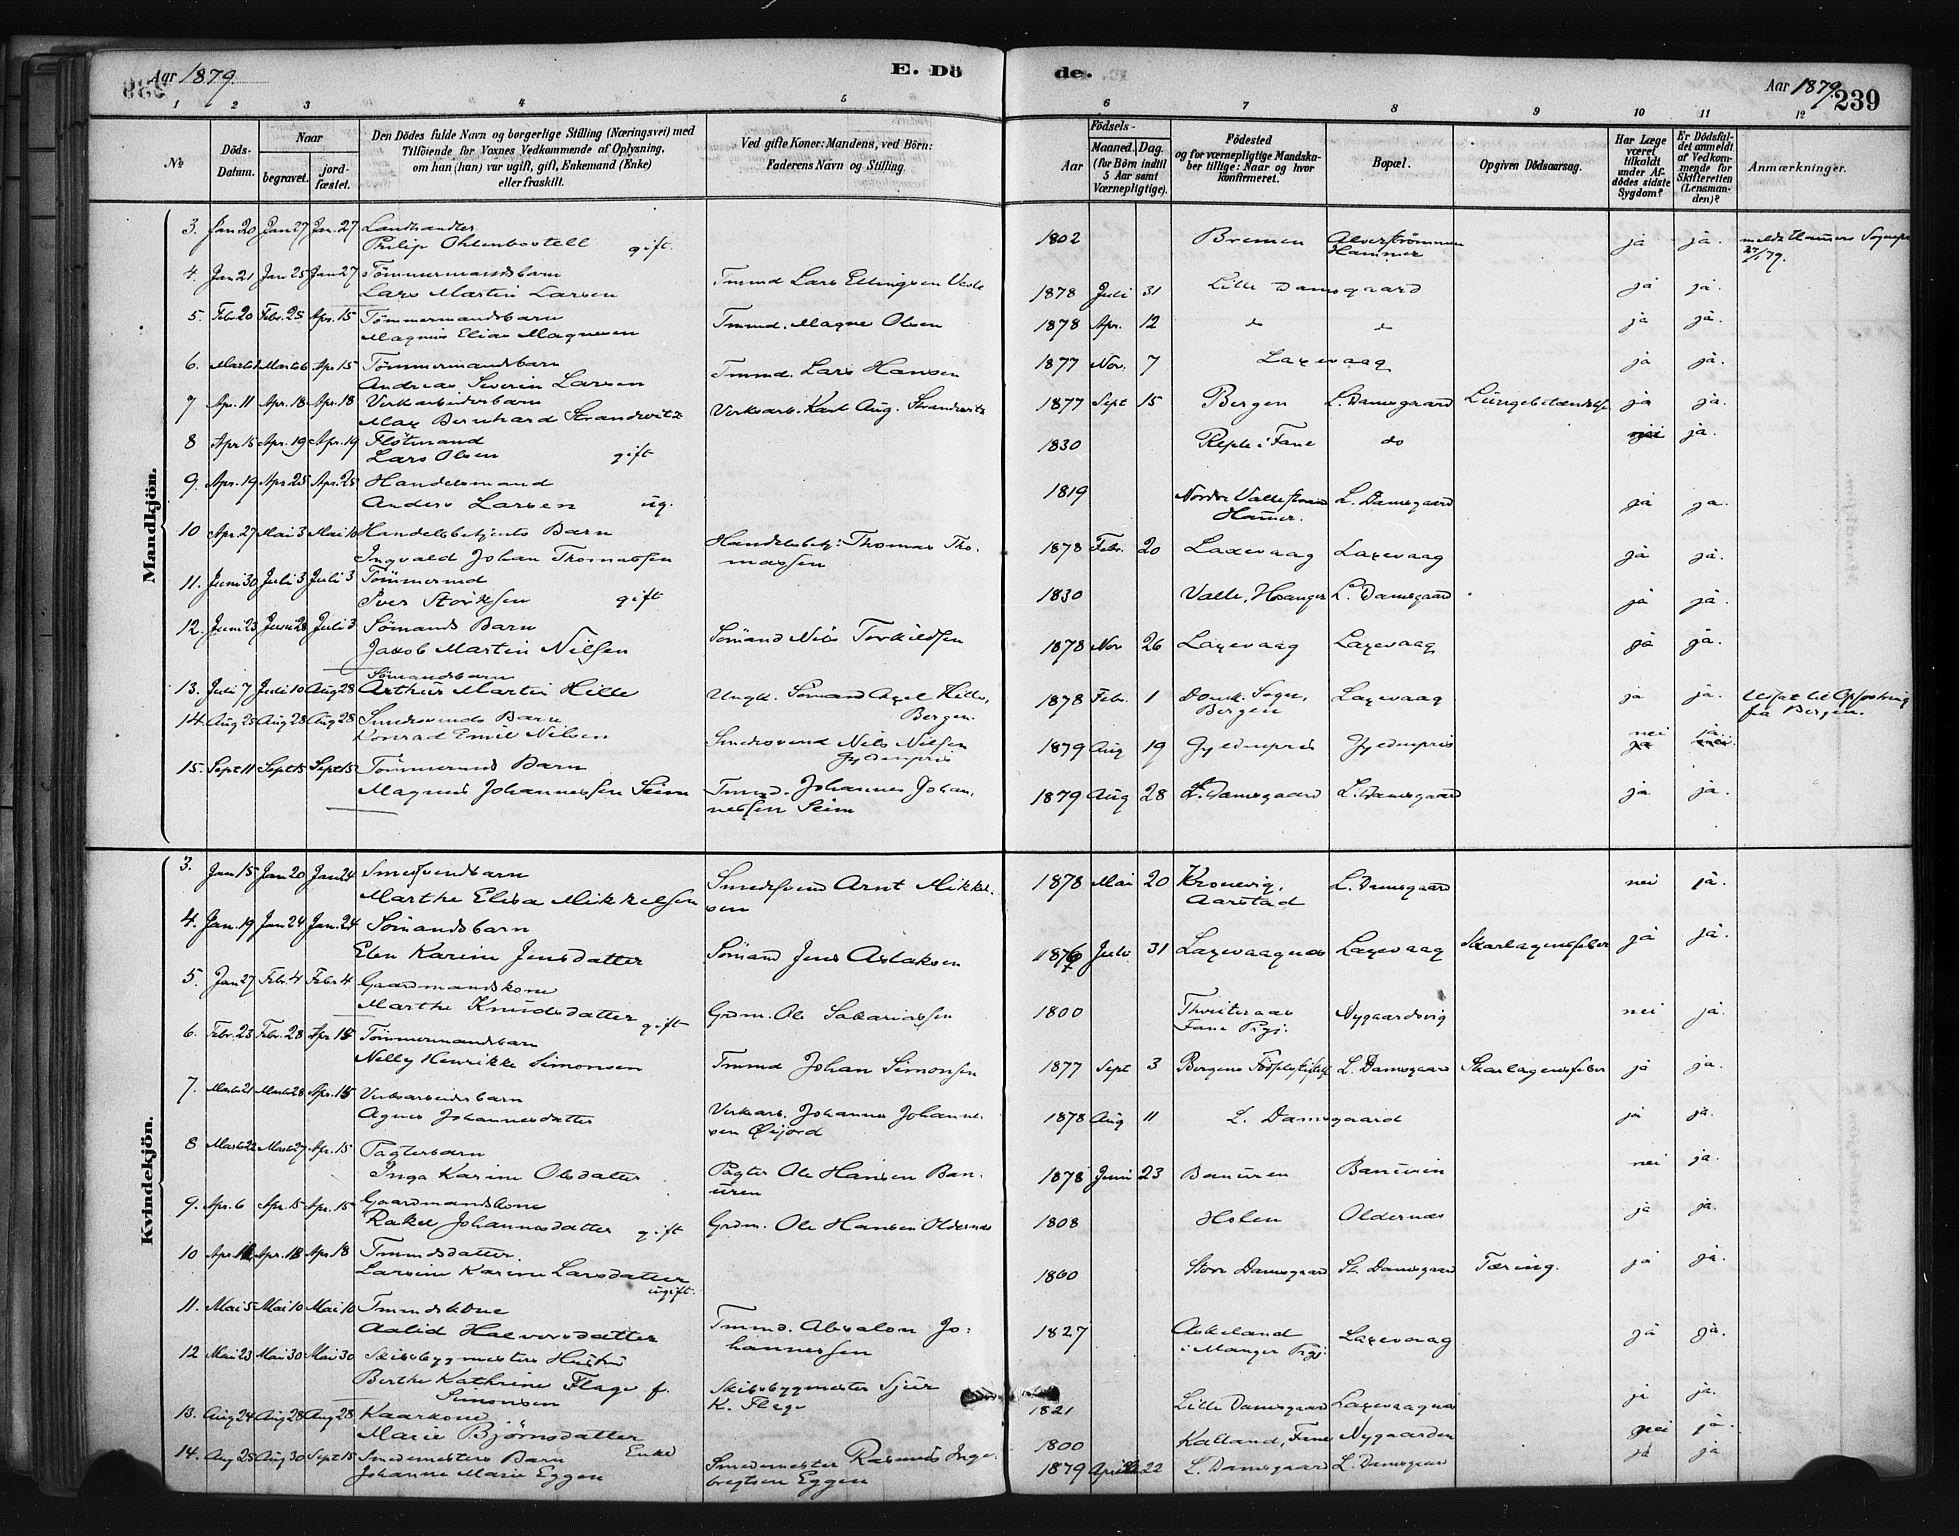 Aar 1879.
E. Dö
de.
Aar 1879.
239
1 2 3 4 5 6 7 8 9 10 11 12
No
Döds-Datum.
Naar
begravet.
jordfæstet.
Den Dödes fulde Navn og borgerlige Stilling (Næringsvei) med Tilföiende for Voxnes Vedkommende af Oplysning, om han (hun) var ugift, gift, Enkemand (Enke) eller fraskilt.
Ved gifte Koner: Mandens, ved Börn: Faderens Navn og Stilling.
Födsels-
Aar
Maaned. Dag.
(for Börn indtil 5 Aar samt Værnepligtige).
Födested og for værnepligtige Mandskaber tillige: Naar og hvor konfirmeret.
Bopæl.
Opgiven Dödsaarsag.
Har Læge været tilkaldt under Afdödes sidste Sygdom?
Er Dödsfaldet anmeldt af Vedkommende for Skifteretten (Lensmanden)?
Anmærkninger.
Mandkjön.
3. Jan 20 Jan 27 Jan. 27 Landhandler
Philip Ohlenbostell gift. 1802 Bremen Alverströmmen Hammer ja ja.
4. Jan 21 Jan 25 Jan 27 Tömmermandsbarn
Lars Martin Larsen Tmmd Lars Ellingsen 1878 Juli 31 Lille Damsgaard ja ja.
5. Febr. 20 Febr. 25 Apr. 15 Tömmermandsbarn
Magnus Elias Magnesen Tmmd. Magne Olsen 1878 Apr. 12 do do ja ja.
6. Marts 1 Marts 6 Apr 15 Tömmermandsbarn
Andreas Severin Larsen Tmmd. Lars Hansen 1877 Nov. 7 Laxevaag ja ja.
7 Apr. 11 Apr. 18 Apr. 18 Verkarbeiderbarn
Max Bernhard Strandwitz Verksarb. Karl Aug. Strandwitz 1877 Sept 15 Bergen L. Damsgaard Lungebetændelse ja ja.
8 Apr 15 Apr. 19 Apr. 19 Flötmand
Lars Olsen gift 1830 i Fane do nei ja.
9. Apr. 19 Apr 25 Apr. 25 Handelsmand
Anders Larsen ug. 1819 Nordre Hamer. L. Damsgaard ja ja.
10 Apr. 27 Mai 3 Mai 10 Handelsbetjents Barn
Ingvald Johan Thomassen Handelsbetj: Thomas Thomassen 1878 Febr. 20 Laxevaag Laxevaag ja ja.
11. Juni 30 Juli 3 Juli 3 Tömmermd
Iver Störksen gift 1830 Valle, Hosanger L. Damsgaard ja ja.
12. Juni 23 Juni 28 Juli 3 Sömands Barn
Jakob Martin Nilsen Sömand Nils Torkildsen 1878 Nov 26 Laxevaag Laxevaag ja ja.
Sömandsbarn
13. Juli 7 Juli 10 Aug 28 Arthur Martin Hille Ungk. Sömand Axel Hille, Bergen. 1878 Febr. 1 Domk. Sogn, Bergen Laxevaag ja ja. til Opfostring fra Bergen.
14. Aug 25 Aug 28 Aug 28 Smedsvends Barn
Konrad Emil Nilsen Smedesvend Nils Nilsen Gyldenpris 1879 Aug 19 Gyldenpris Gyldenpris nei ja
15. Sept 11 Sept 15 Sept 15 Tömmermds Barn
Magnus Johannessen Seim Tmmd. Johannes Johannessen Seim 1879 Aug 28 L. Damsgaard L. Damsgaard ja ja.
Kvindekjön.
3. Jan 15 Jan 20 Jan 24 Smedsvendbarn
Marthe Elisa Mikkelsen Smedesvend Arnt Mikkelsen 1878 Mai 20 Kronevig, Aarstad L. Damsgaard nei ja.
4. Jan. 19 Jan 24 Jan. 24 Sömandsbarn
Elen Karine Jensdatter Sömand Jens Aslaksen Juli. 31 Laxevaagnes Laxevaag Skarlagensfeber ja ja.
5. Jan 27 Febr. 4 Febr 4 Gaardmandskone
Marthe Knudsdatter gift Grdm. Ole Sakariassen 1800 Fane Prgj. Nygaardsvig nei ja.
6. Febr. 23 Febr. 28 Apr 15 Tömmermandsbarn
Nelly Henrikke Simonsen Tmmd Johan Simonsen 1877 Sept 3 Bergens L. Damsgaard Skarlagensfeber ja ja.
7. Marts 21 Marts 28 Apr. 15 Verksarbeiderbarn
Agnes Johannesdatter Verksarb. Johannes Johannesen Öxjord 1878 Aug 11 L. Damsgaard ja ja.
8 Marts 22 Marts 27 Apr. 15 Pagterbarn
Inga Karine Olsdatter Pagter Ole Hansen Banuren 1878 Juni 23 Banuren Banuren nei ja.
9. Apr. 6 Apr. 15 Apr. 15 Gaardmandskone
Rakel Johannesdatter gift Grdm. Ole Hansen Oldernes 1808 Holen Oldernes ja ja.
10 Apr. 12 Apr. 18 Apr 18 Tmmdsdatter
Larsine Karine Larsdatter ugift. 1860 Store Damsgaard St. Damsgaard Tæring. ja ja.
11. Mai 5 Mai 10 Mai 10 Tmmdskone
Aalid Halvorsdatter Tmmd. Absalon Johannessen 1827 Askeland i Manger Prgj: Laxevaag ja ja.
12 Mai 23 Mai 30 Mai 30 Skibsbygmesters Hustru
Berthe Kathrine Flage f. Simonsen Skibsbygmester Sjur K. Flage 1821 Lille Damsgaard Laxevaagnes ja ja.
13. Aug 24 Aug 28 Aug 28 Kaarkone
Marie Bjørnsdatter Enke 1800 Kalland, Fane Nygaarden nei ja.
14. Aug 25 Aug 30 Sept 15 Smedemesters Barn
Johanne Marie Eggen Smedemester Rasmus Ingebregtsen Eggen 1879 April 22 L. Damsgaard L. Damsgaard ja ja